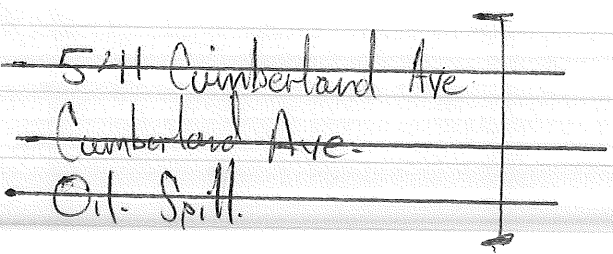 - 541 Cumberland Ave
- Cumberland Ave.
• Oil Spill.